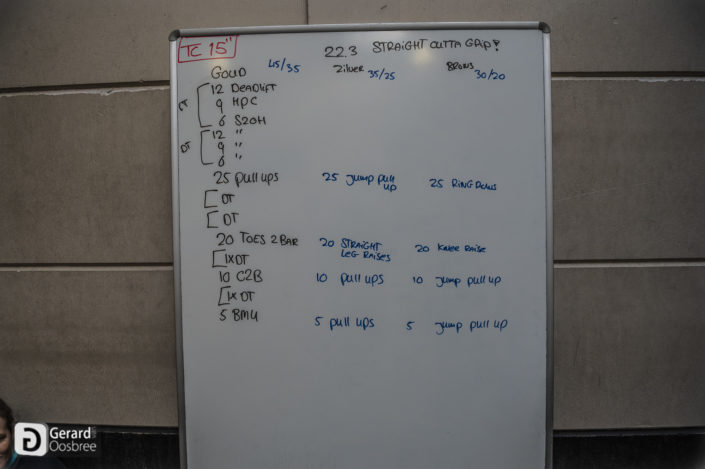 TC 15"
22.3 STRAIGHT OUTTA GRIP!
GOUD 45/35 Zilver 35/25 BRONS 30/20
DT 12 DEADLIFT
9 HPC
6 S2OH
DT 12 "
9 "
6 "
25 pull ups 25 Jump pull up 25 RING ROWS
DT
DT
20 TOES 2 BAR 20 STRAIGHT LEG RAISES 20 KNEE RAISE
1x DT
10 C2B 10 pull ups 10 jump pull up
1x DT
5 BMU 5 pull ups 5 jump pull up
Gerard Oosbree